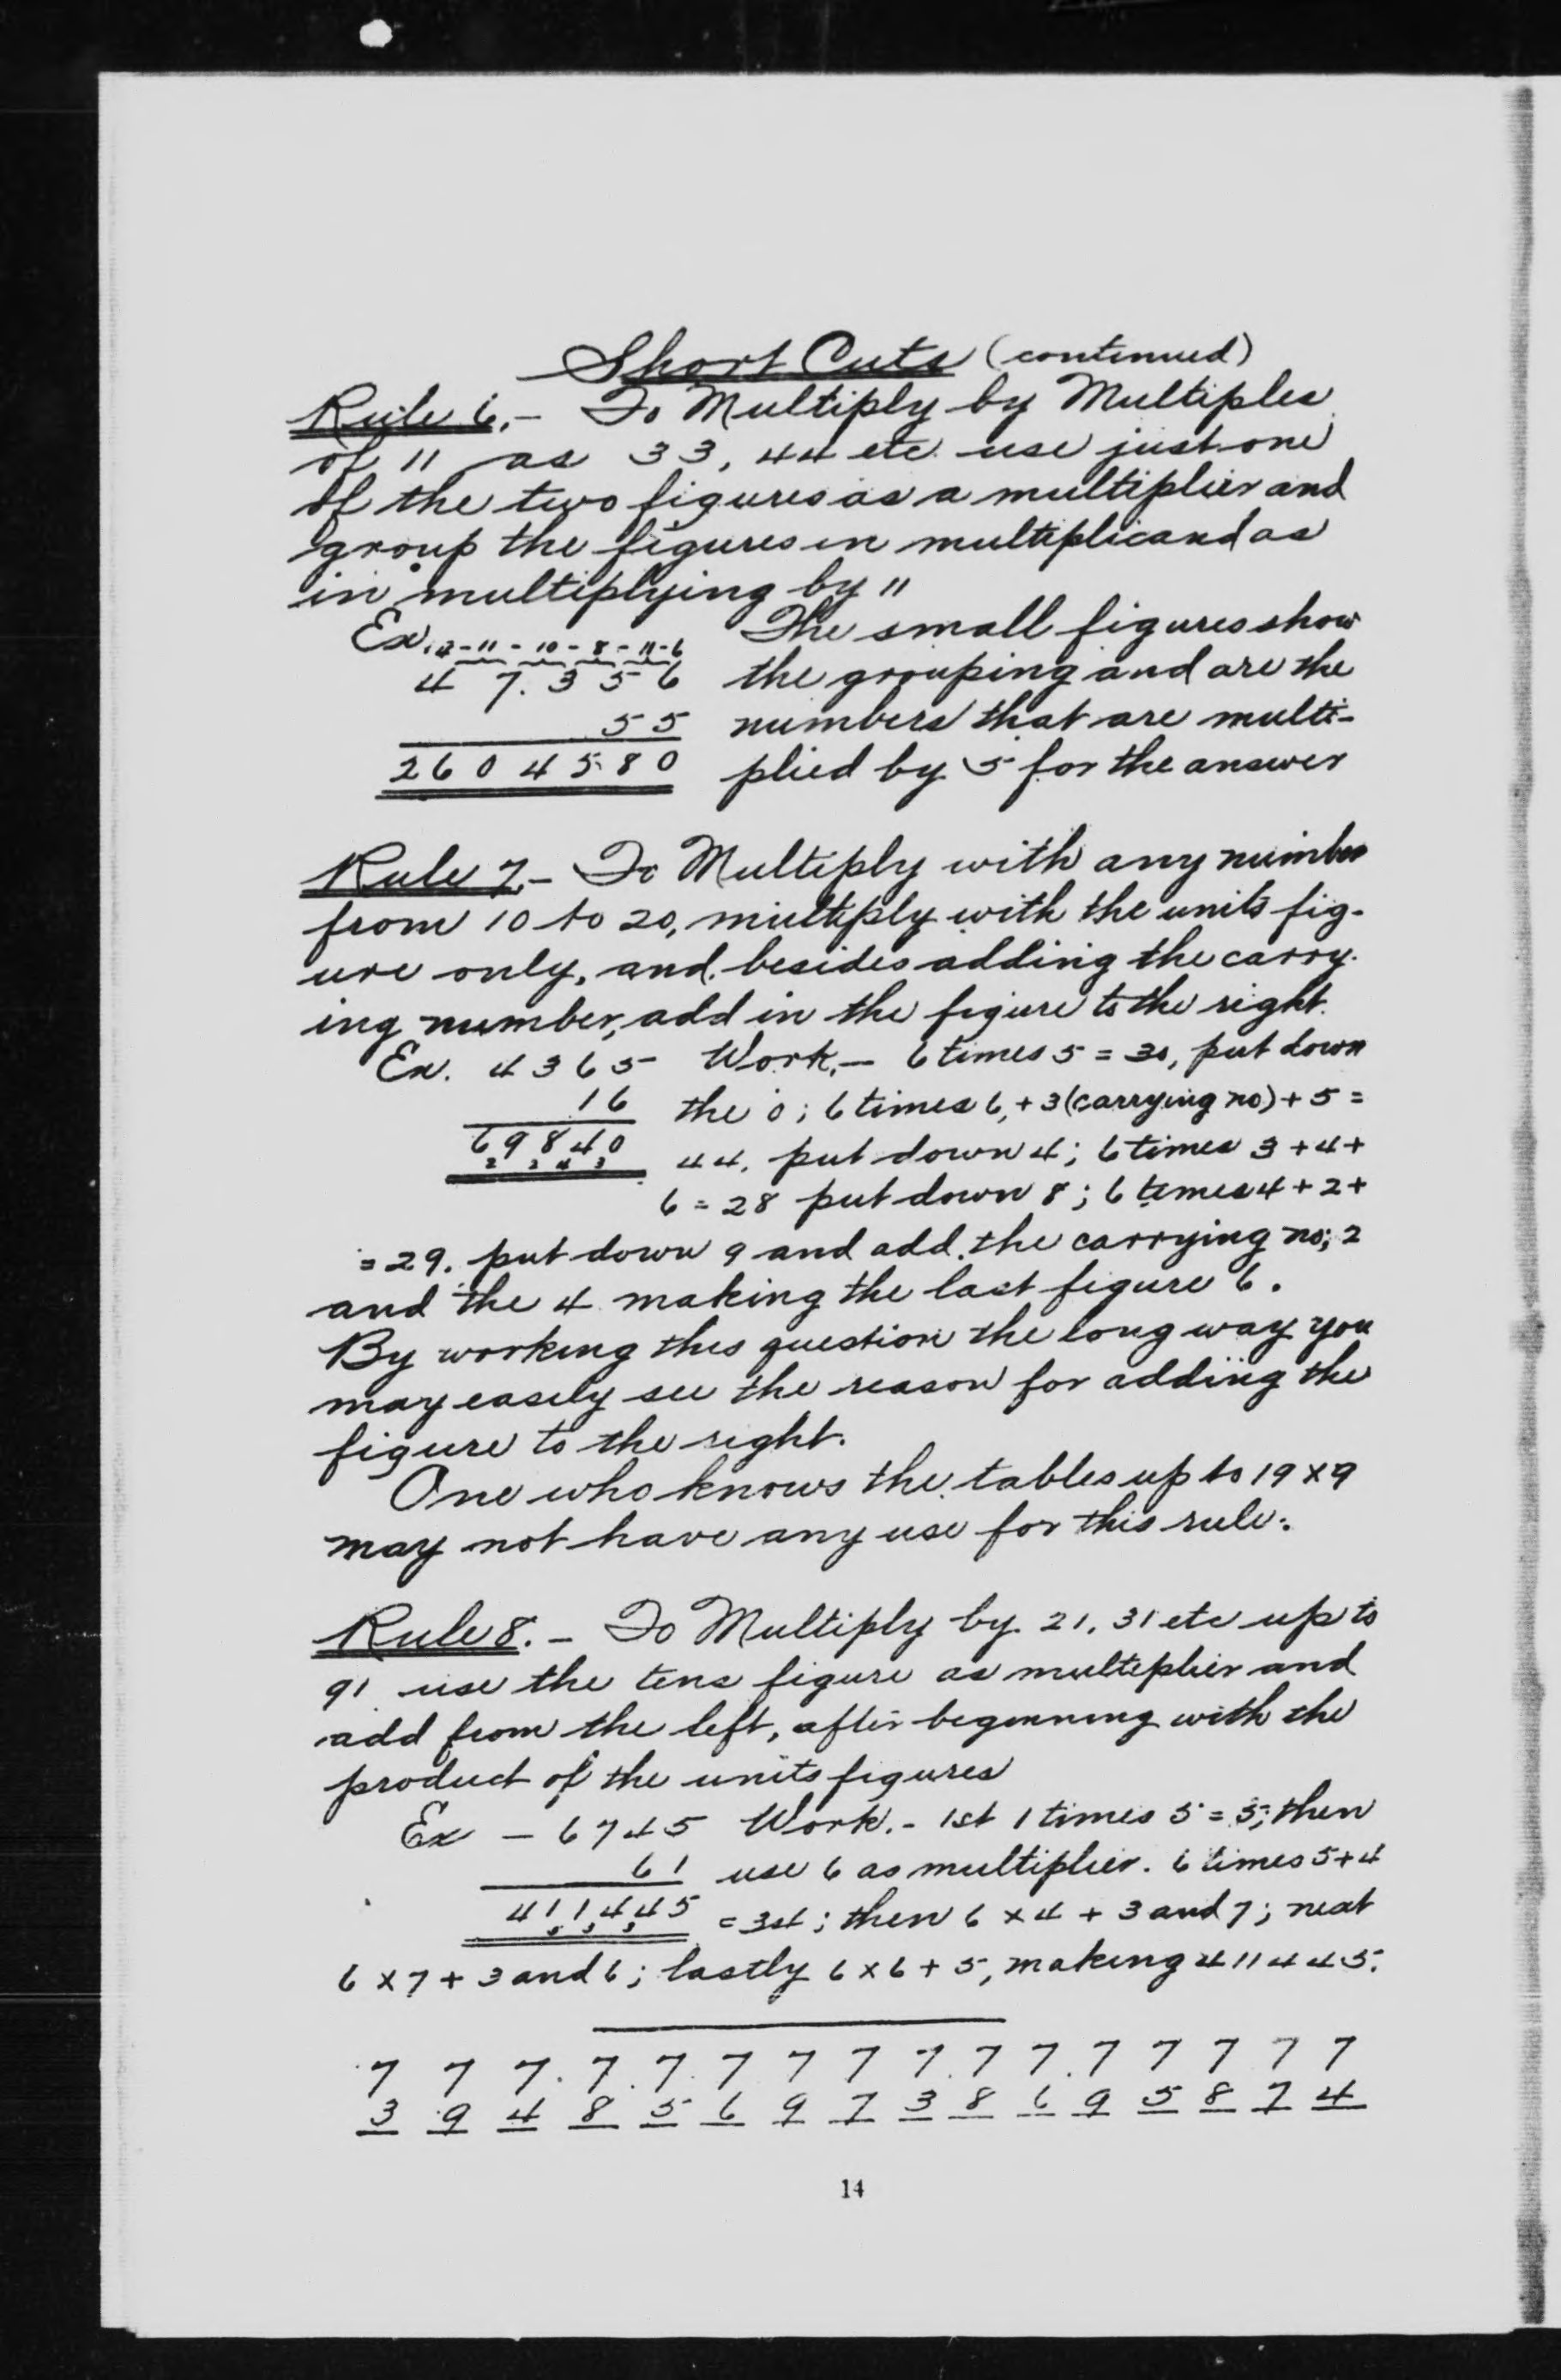 Short Cuts (continued)
Rule 6.- To Multiply by Multiples
of 11 as 33, 44 etc. use just one
of the two figures as a multiplier and
group the figures in multiplicand as
in multiplying by 11
Ex. 4-11-10-8-11-6 The small figures show
4 7 3 5 6 the grouping and are the
5 5 numbers that are multi-
2 6 0 4 5 8 0 plied by 5 for the answer
Rule 7.- To Multiply with any number
from 10 to 20, multiply with the units fig-
ure only, and besides adding the carry-
ing number, add in the figure to the right.
Ex. 4 3 6 5 Work.- 6 times 5 = 30, put down
1 6 the 0; 6 times 6, + 3 (carrying no) + 5 =
6 9 8 4 0 44, put down 4; 6 times 3 + 4 +
2 2 4 3
6 = 28 put down 8; 6 times 4 + 2 +
= 29. put down 9 and add the carrying no; 2
and the 4 making the last figure 6.
By working this question the long way you
may easily see the reason for adding the
figure to the right.
One who knows the tables up to 19 x 9
may not have any use for this rule.
Rule 8.- To Multiply by 21, 31 etc up to
91 use the tens figure as multiplier and
add from the left, after beginning with the
product of the units figures
Ex - 6 7 4 5 Work.- 1st 1 times 5 = 5; then
6 1 use 6 as multiplier. 6 times 5 + 4
4 1 1 4 4 5 = 34; then 6 x 4 + 3 and 7; next
5 3 3
6 x 7 + 3 and 6; lastly 6 x 6 + 5, making 411445.
7 7 7 7 7 7 7 7 7 7 7 7 7 7 7 7
3 9 4 8 5 6 9 7 3 8 6 9 5 8 7 4
14